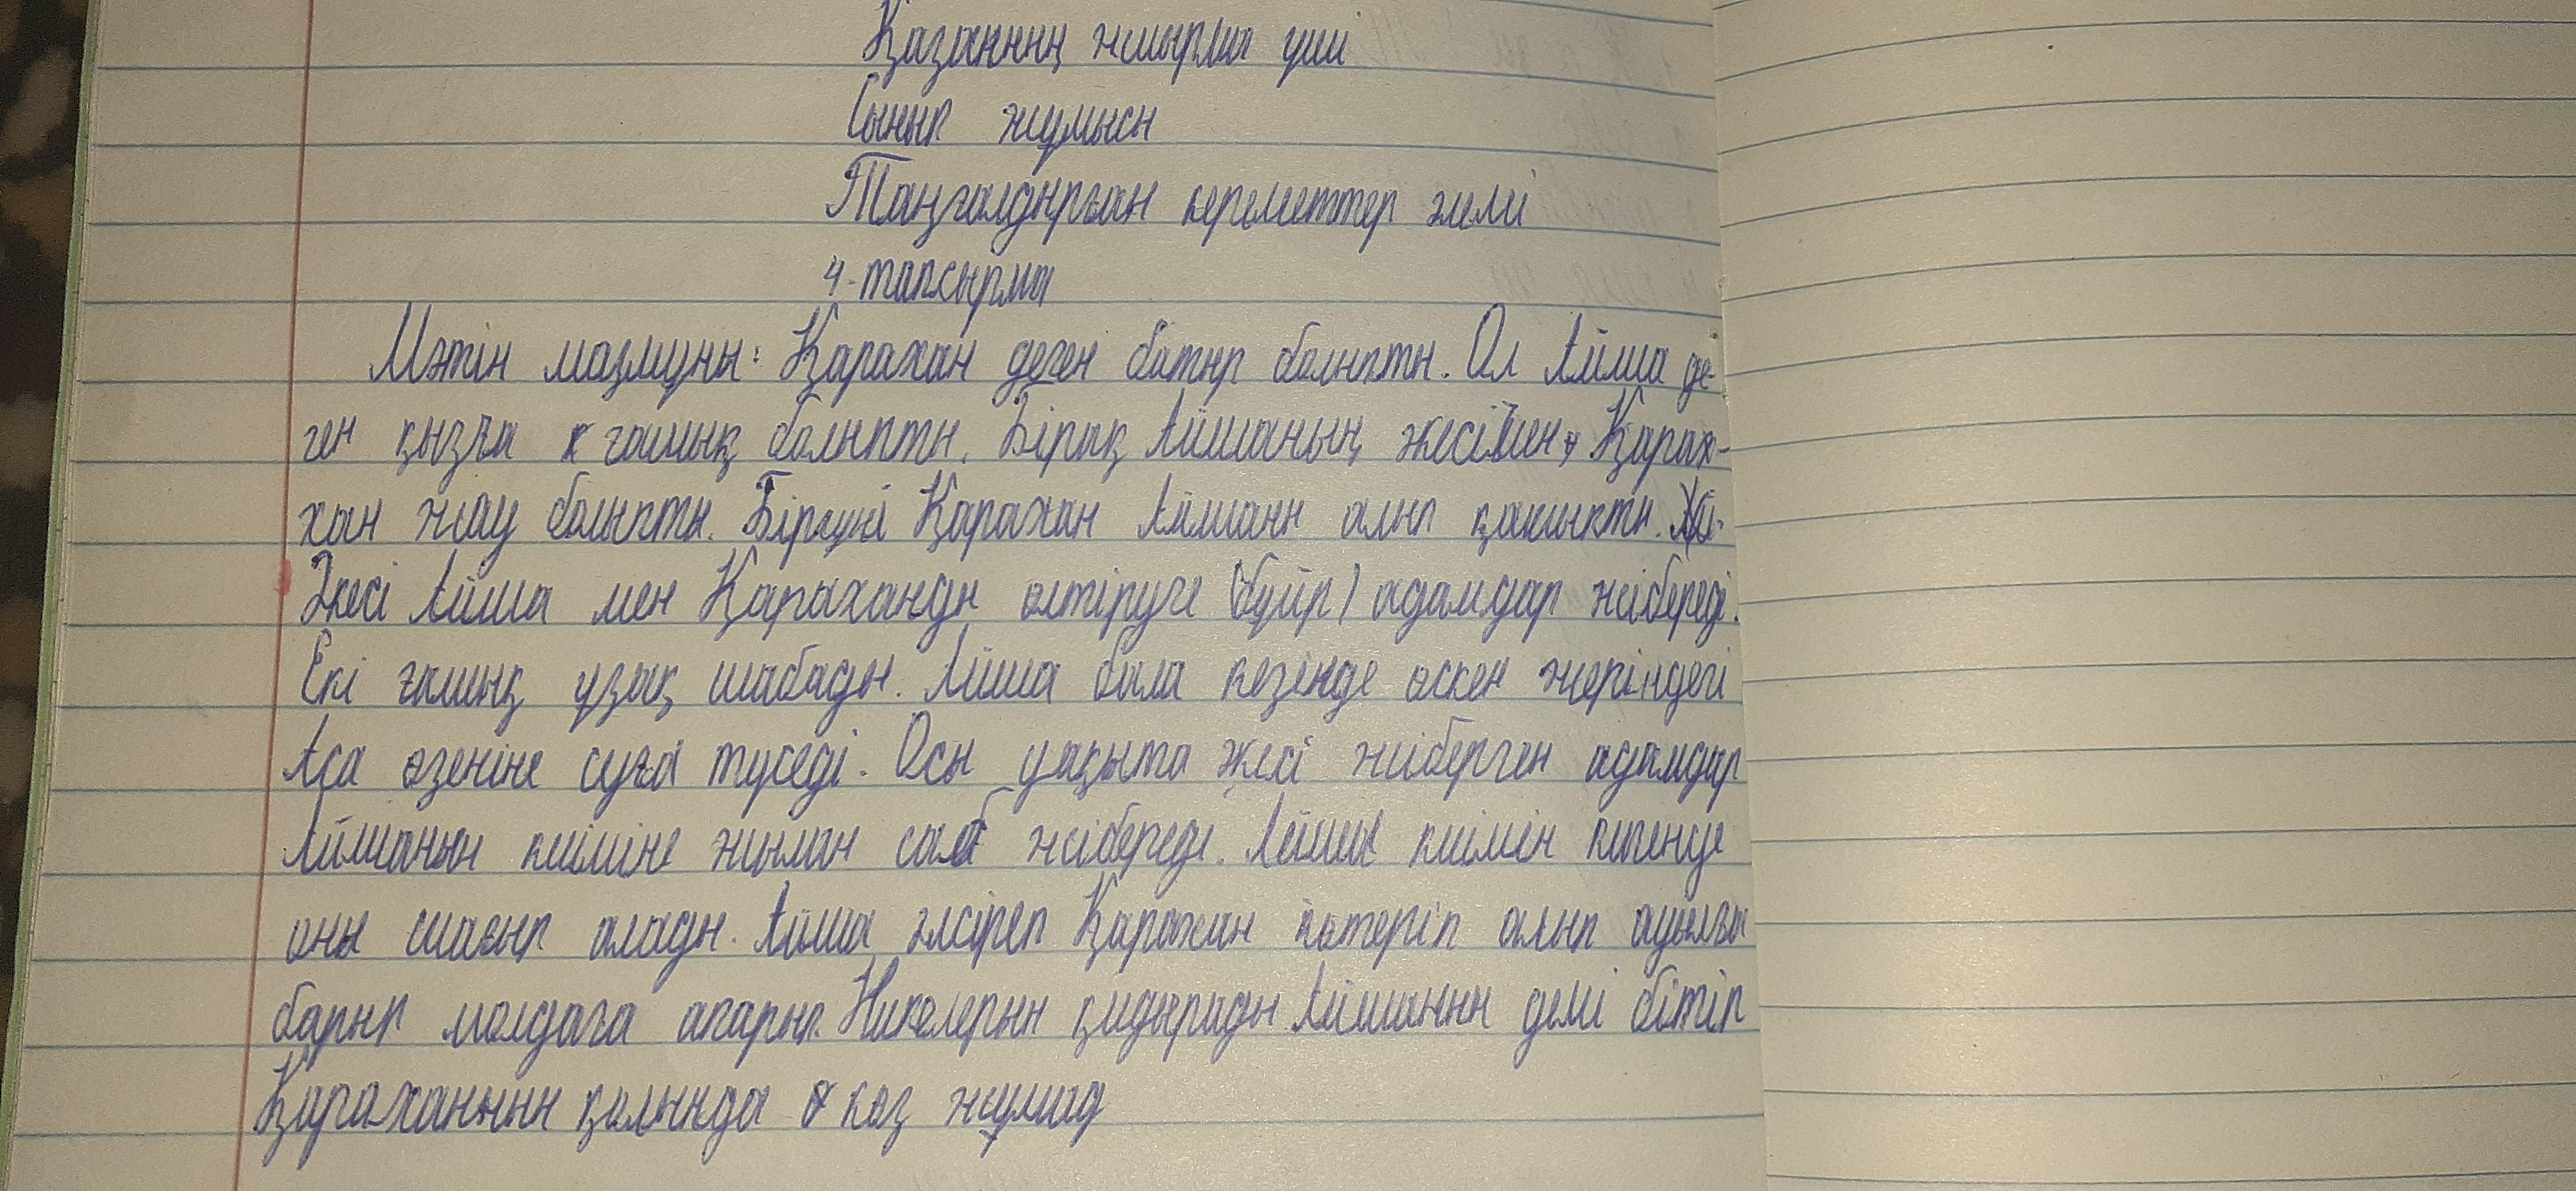 Қазанның жиырма үші
Сынып жұмысы
Таңғалдырған кереметтер әлемі
4-тапсырма
Мәтін мазмұны: Қарахан деген батыр болыпты. Ол Айша де-
ген қызға ғашық болыпты. Бірақ Айшаның әкесімен Қарах-
хан жау болыпты. Біркүні Қарахан Айшаны алып қашыпты.
Әкесі Айша мен Қараханды өлтіруге (бұйр) адамдар жібереді.
Екі ғашық ұзақ шабады. Айша бала кезінде өскен жеріндегі
Аса өзеніне суға түседі. Осы уақыта әкесі жіберген адамдар
Айшанын киіміне жылан салб жібереді. Айша киімін кигенде
оны шағып алады. Айша әлсіреп Қарахан көтеріп алып ауылға
барып молдаға апарып. Никелерын қидырады Айшанын демі бітіп
Қараханнын қолында көз жұмад